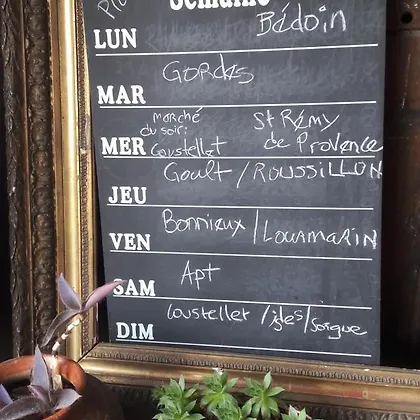 Semaine
LUN Bédoin
MAR Gordes
MER marché du soir: Coustellet St Rémy de Provence
JEU Goult / ROUSSILLON
VEN Bonnieux / LOURMARIN
SAM Apt
DIM Coustellet / isles / Sorgue